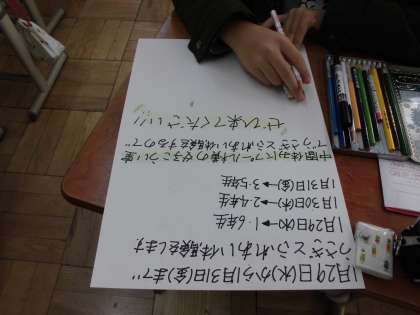 1月29日(水)から1月31日(金)まで
うさぎとふれあい体験をします
1月29日(水)→1・6年生
1月30日(木)→2・4年生
1月31日(金)→3・5年生
中間休みにプール横の
でうさぎとふれあい体験をするので
ぜひ来てください!!